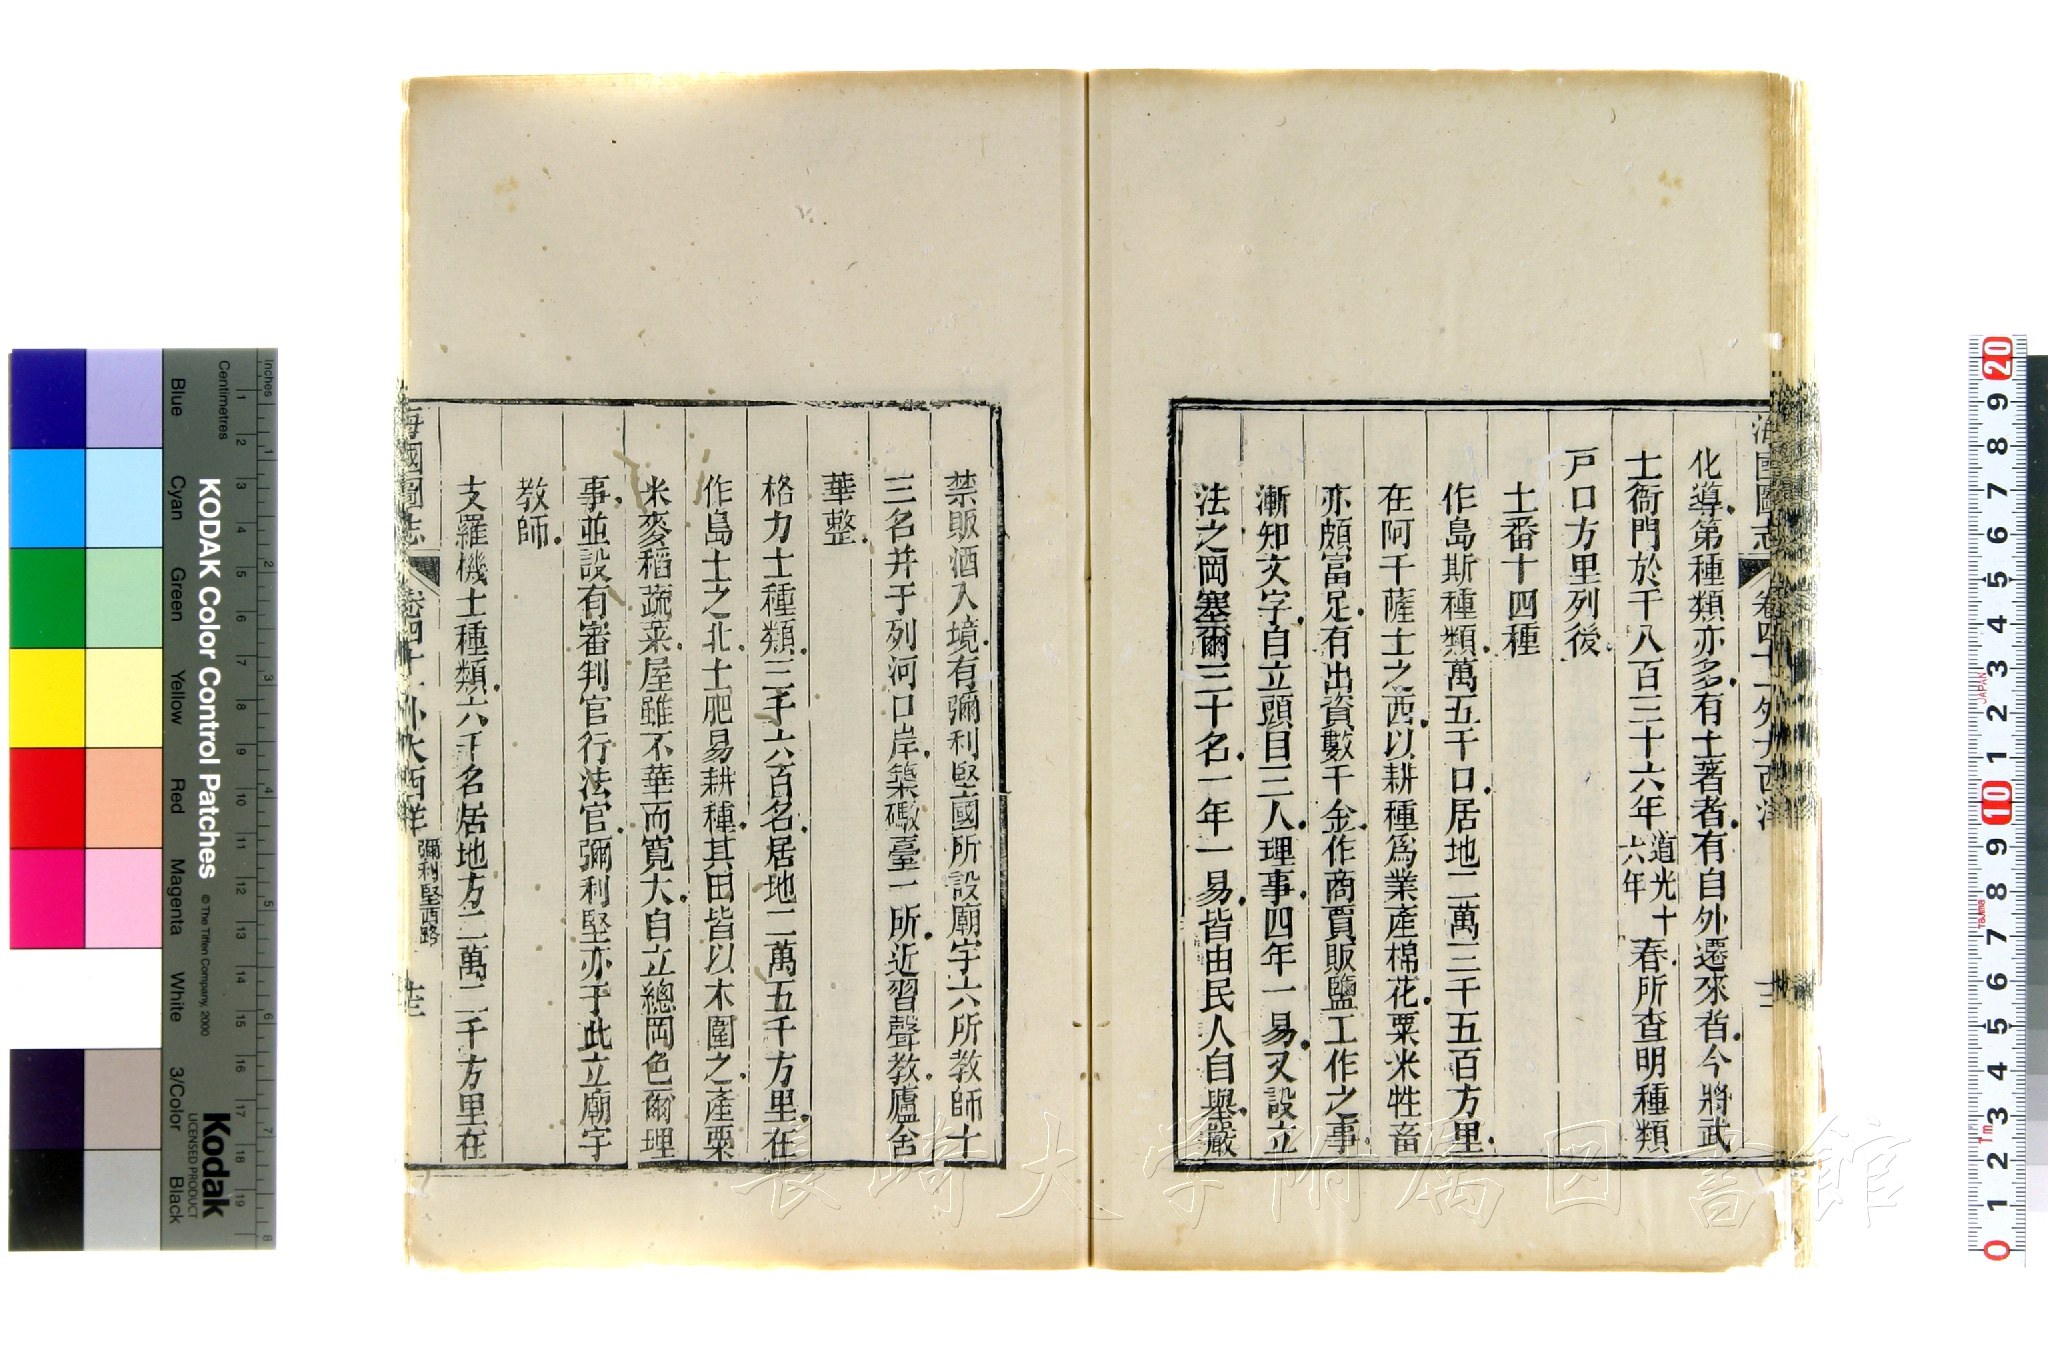 海國圖志 卷四十一外大西洋 十二
化導第種類亦多有土著者有自外遷來者今將武
士衙門於千八百三十六年道光十六年春所查明種類
戸口方里列後
土番十四種
作島斯種類萬五千口居地二萬三千五百方里
在阿千薩士之西以耕種爲業產棉花粟米牲畜
亦頗富足有出資數千金作商賈販鹽工作之事
漸知文字自立頭目三人理事四年一易又設立
法之岡塞爾三十名一年一易皆由民人自舉嚴
禁販酒入境有彌利堅國所設廟宇六所教師十
三名并于列河口岸築礮臺一所近習聲教廬舍
華整
格力士種類三千六百名居地二萬五千方里在
作島士之北土肥易耕種其田皆以木圍之產粟
米麥稻蔬菜屋雖不華而寬大自立總岡色爾理
事並設有審判官行法官彌利堅亦于此立廟宇
教師
支羅機士種類六千名居地方二萬二千方里在
海國圖志 卷四十一外大西洋 彌利堅西路 十三
長崎大学附属図書館
KODAK Color Control Patches
© The Tiffen Company, 2000
Kodak
LICENSED PRODUCT
Inches
Centimetres
Blue
Cyan
Green
Yellow
Red
Magenta
White
3/Color
Black
1 2 3 4 5 6 7 8
1 2 3 4 5 6 7 8 9 10 11 12 13 14 15 16 17 18 19
20 9 8 7 6 5 4 3 2 1 10 9 8 7 6 5 4 3 2 1 0
JAPAN
Tajima
Tm